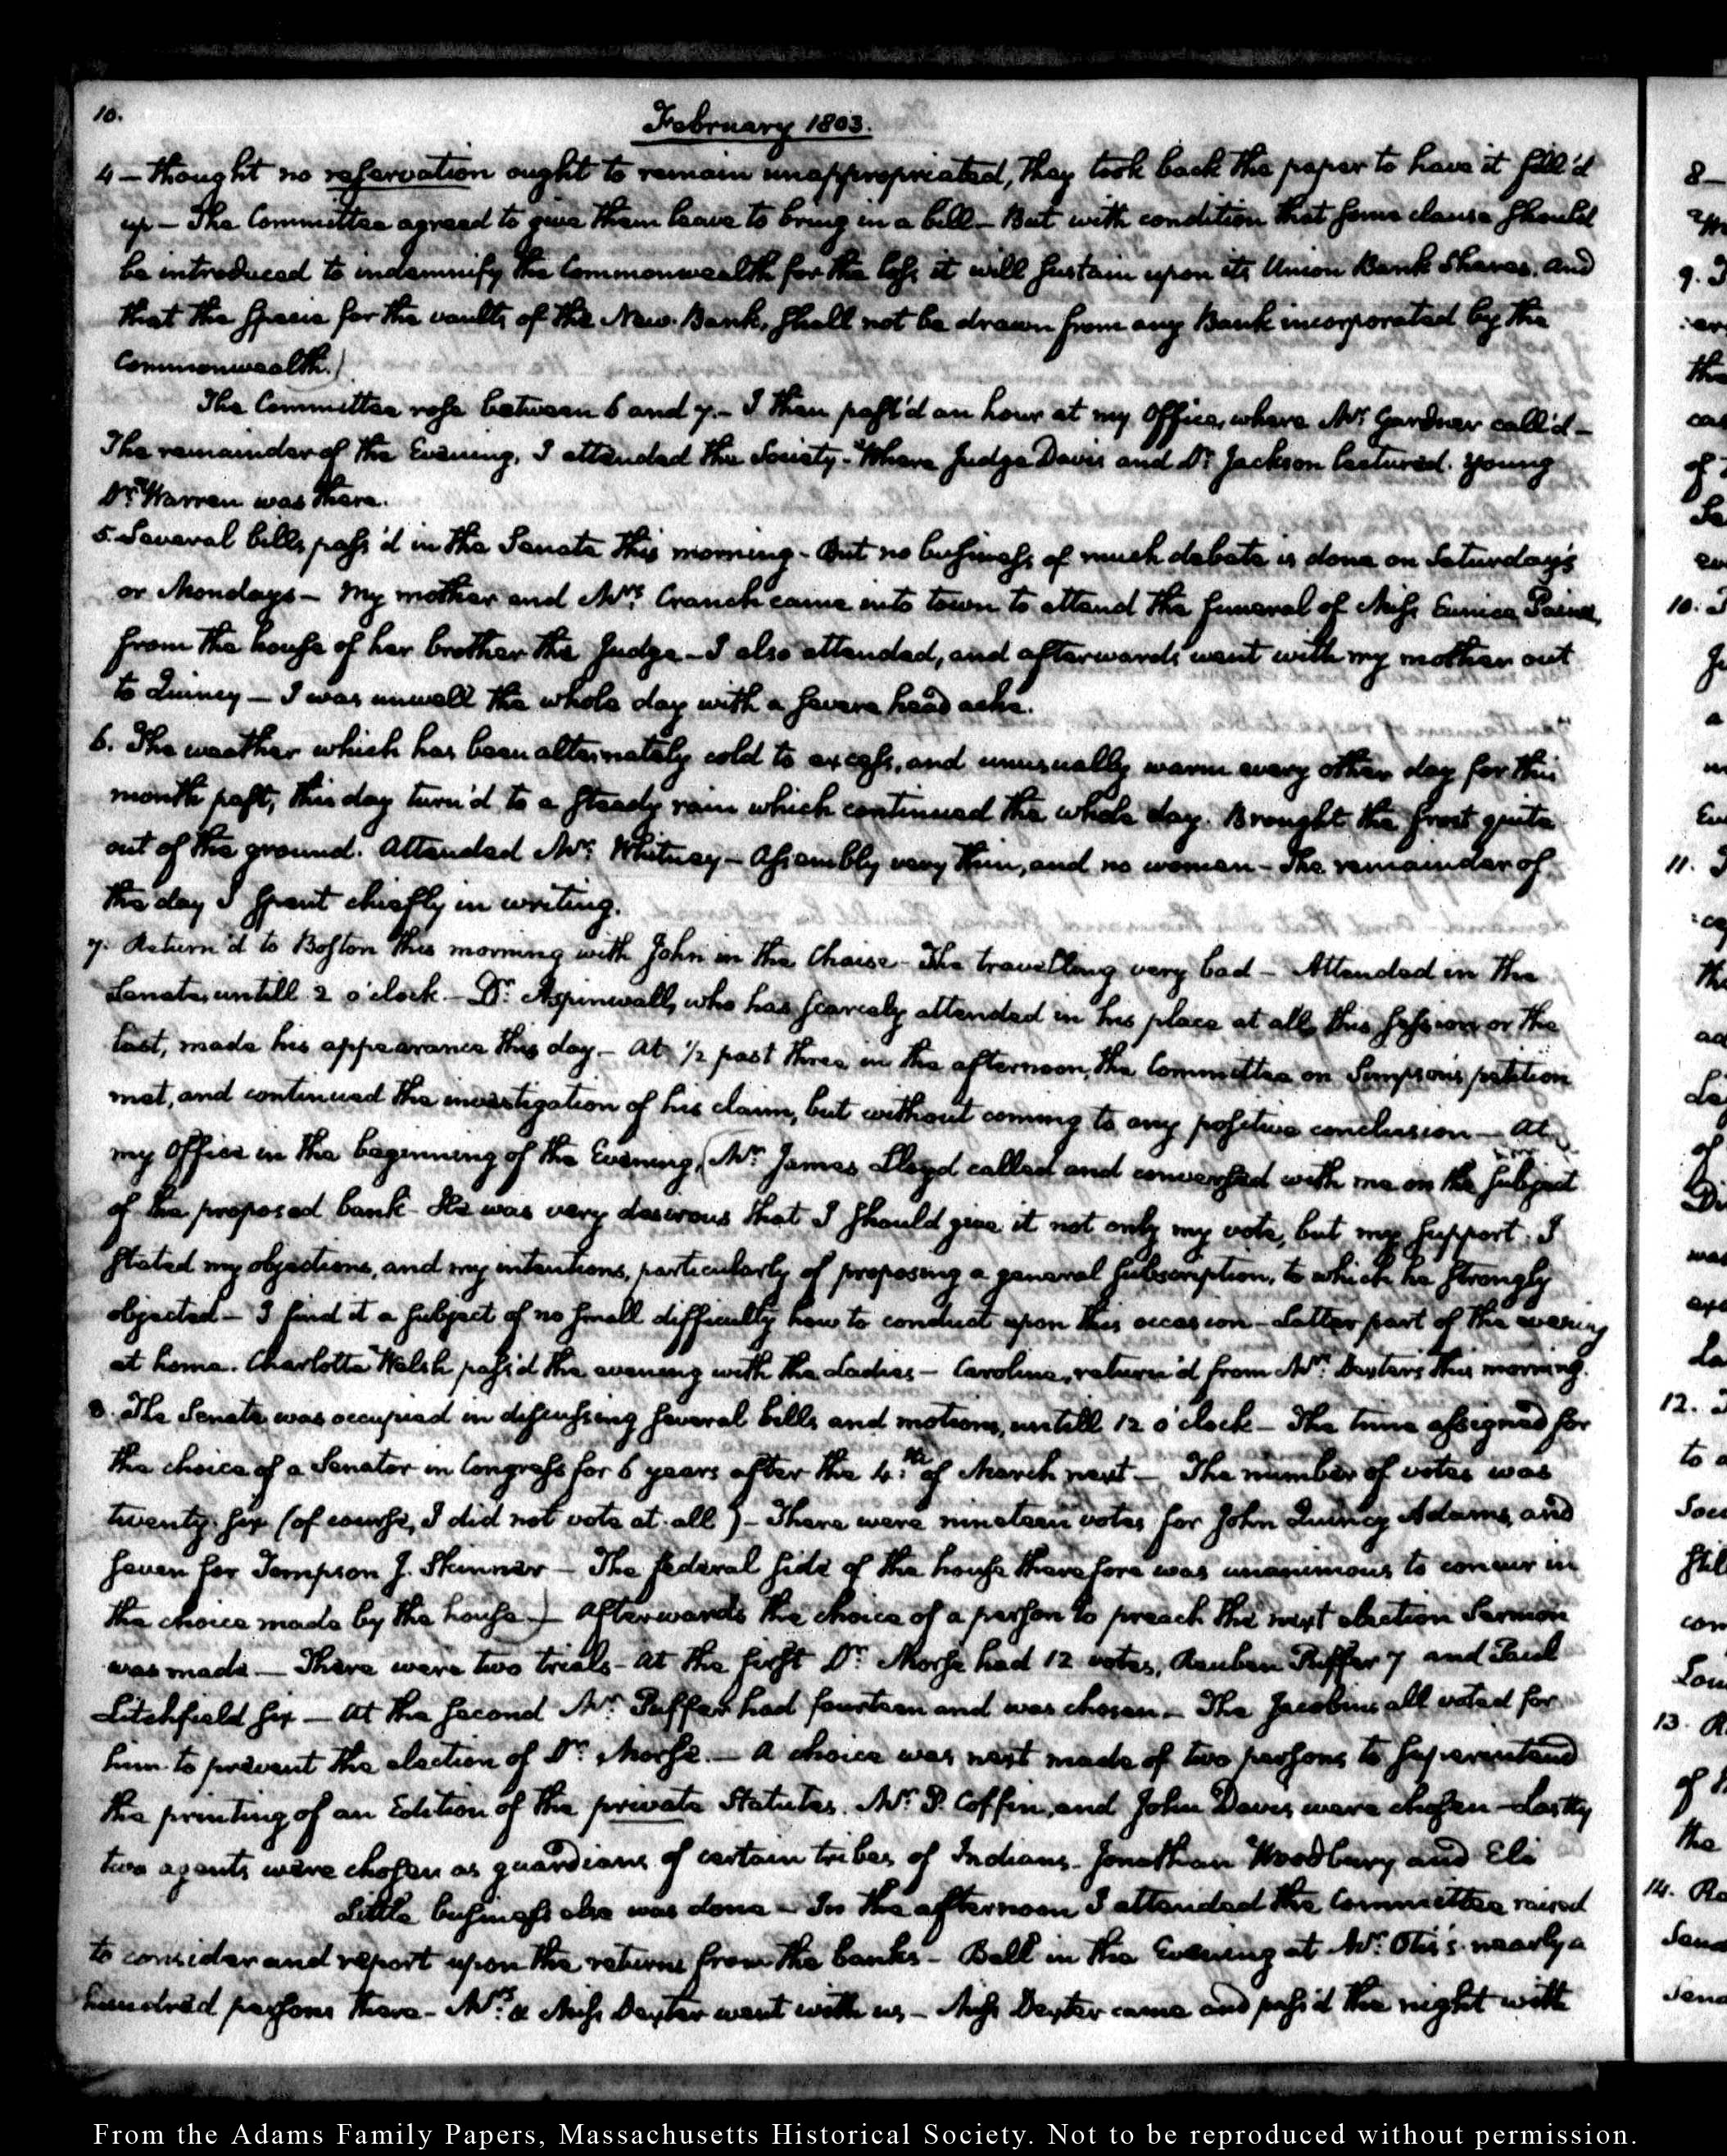 10.
February 1803.
4 — thought no reservation ought to remain unappropriated, they took back the paper to have it fill'd
up — The Committee agreed to give them leave to bring in a bill — But with condition that some clause should
be introduced to indemnify the Commonwealth for the loss it will sustain upon its Union Bank Shares. And
that the specie for the vaults of the New Bank, shall not be drawn from any Bank incorporated by the
Commonwealth.)
The Committee rose between 6 and 7. — I then pass'd an hour at my Office, where Mr. Gardner call'd —
The remainder of the Evening, I attended the Society — Where Judge Davis and Dr. Jackson lectured. Young
Dr. Warren was there.
5. Several bills pass'd in the Senate this morning — But no business of much debate is done on Saturday's
or Mondays — My mother and Mrs. Cranch came into town to attend the funeral of Miss Eunice Paine,
from the house of her brother the Judge — I also attended, and afterwards went with my mother out
to Quincy — I was unwell the whole day with a severe head ache.
6. The weather which has been alternately cold to excess, and unusually warm every other day for this
month past, this day turn'd to a steady rain which continued the whole day. Brought the frost quite
out of the ground. Attended Mr. Whitney — Assembly very thin, and no women — The remainder of
the day I spent chiefly in writing.
7. Return'd to Boston this morning with John in the Chaise — The travelling very bad — Attended in the
Senate, untill 2 o'clock — Dr. Aspinwall, who has scarcely attended in his place at all, this session or the
last, made his appearance this day — At ½ past three in the afternoon, the Committee on Simpson's petition
met, and continued the investigation of his claim, but without coming to any positive conclusion — At
my Office in the beginning of the Evening, (Mr. James Lloyd called and conversed with me on the subject
of the proposed bank — He was very desirous that I should give it not only my vote, but my support. I
stated my objections, and my intentions, particularly of proposing a general subscription, to which he strongly
objected — I find it a subject of no small difficulty how to conduct upon this occasion — Latter part of the evening
at home. Charlotte Welsh pass'd the evening with the Ladies — Caroline, return'd from Mr. Dexter's this morning.
8. The Senate was occupied in discussing several bills and motions, untill 12 o'clock — The time assigned for
the choice of a Senator in Congress for 6 years after the 4th. of March next — The number of votes was
twenty-six (of course, I did not vote at all) — There were nineteen votes for John Quincy Adams, and
seven for Tompson J. Skinner — The federal side of the house therefore was unanimous to concur in
the choice made by the house) — Afterwards the choice of a person to preach the next election Sermon
was made — There were two trials — At the first Dr. Morse had 12 votes, Reuben Puffer 7 and Paul
Litchfield six — At the second Mr. Puffer had fourteen and was chosen — The Jacobins all voted for
him to prevent the election of Dr. Morse. — A choice was next made of two persons to superintend
the printing of an Edition of the private Statutes. Mr. P. Coffin, and John Davis, were chosen — Lastly
two agents were chosen as guardians of certain tribes of Indians — Jonathan Woodbury and Eli
Little business else was done — In the afternoon I attended the Committee raised
to consider and report upon the returns from the banks — Ball in the Evening at Mr. Otis's nearly a
hundred persons there — Mrs. & Miss Dexter went with us — Miss Dexter came and pass'd the night with
From the Adams Family Papers, Massachusetts Historical Society. Not to be reproduced without permission.